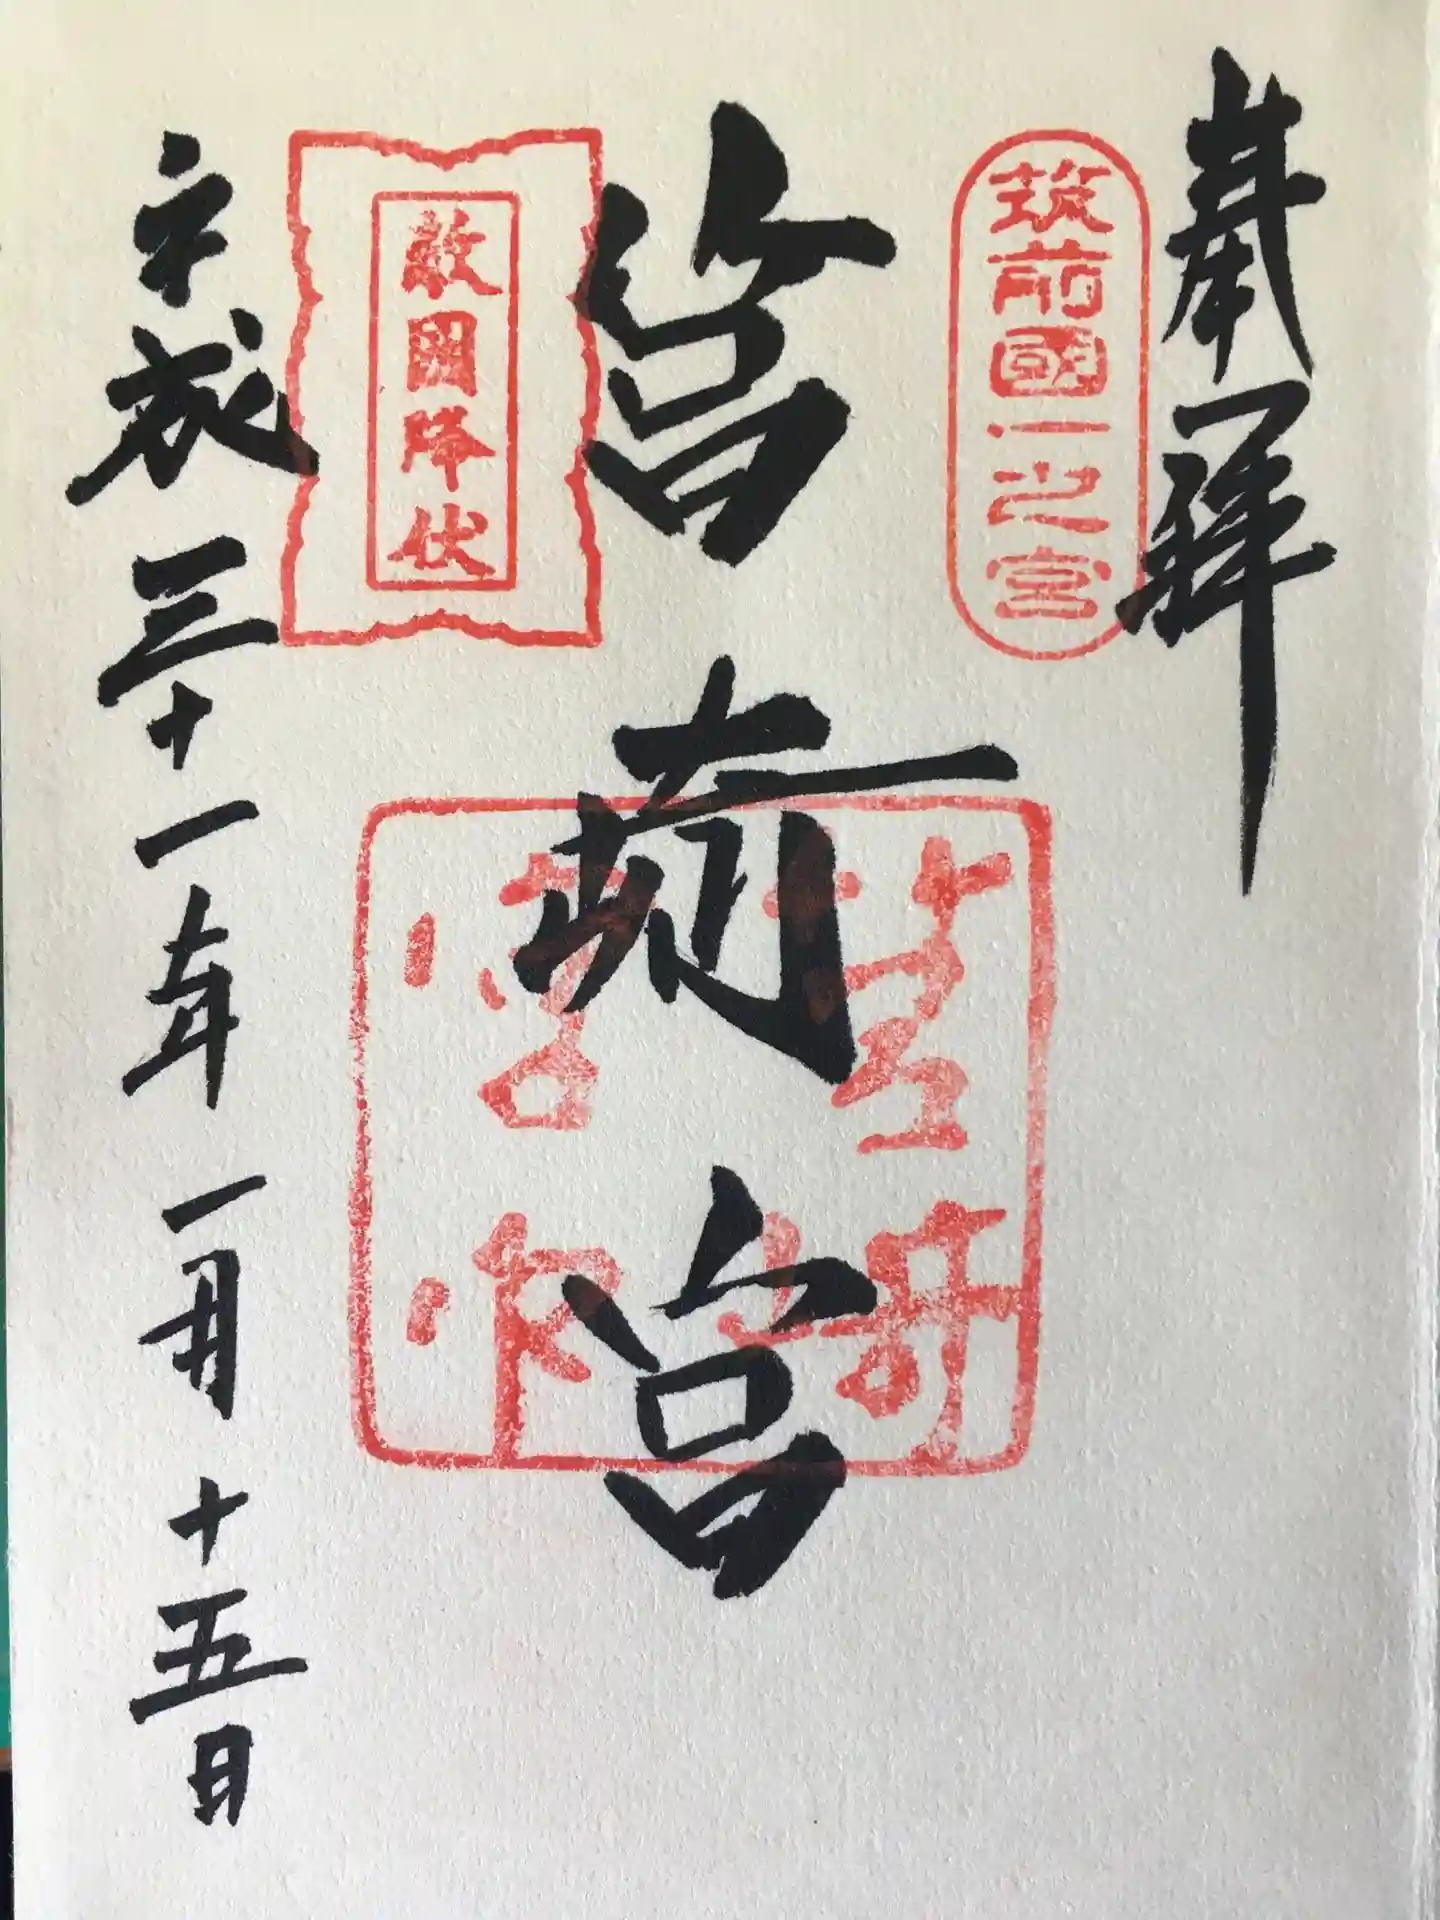 奉拝
筑前國一之宮
筥崎宮
敵國降伏
平成三十一年一月十五日